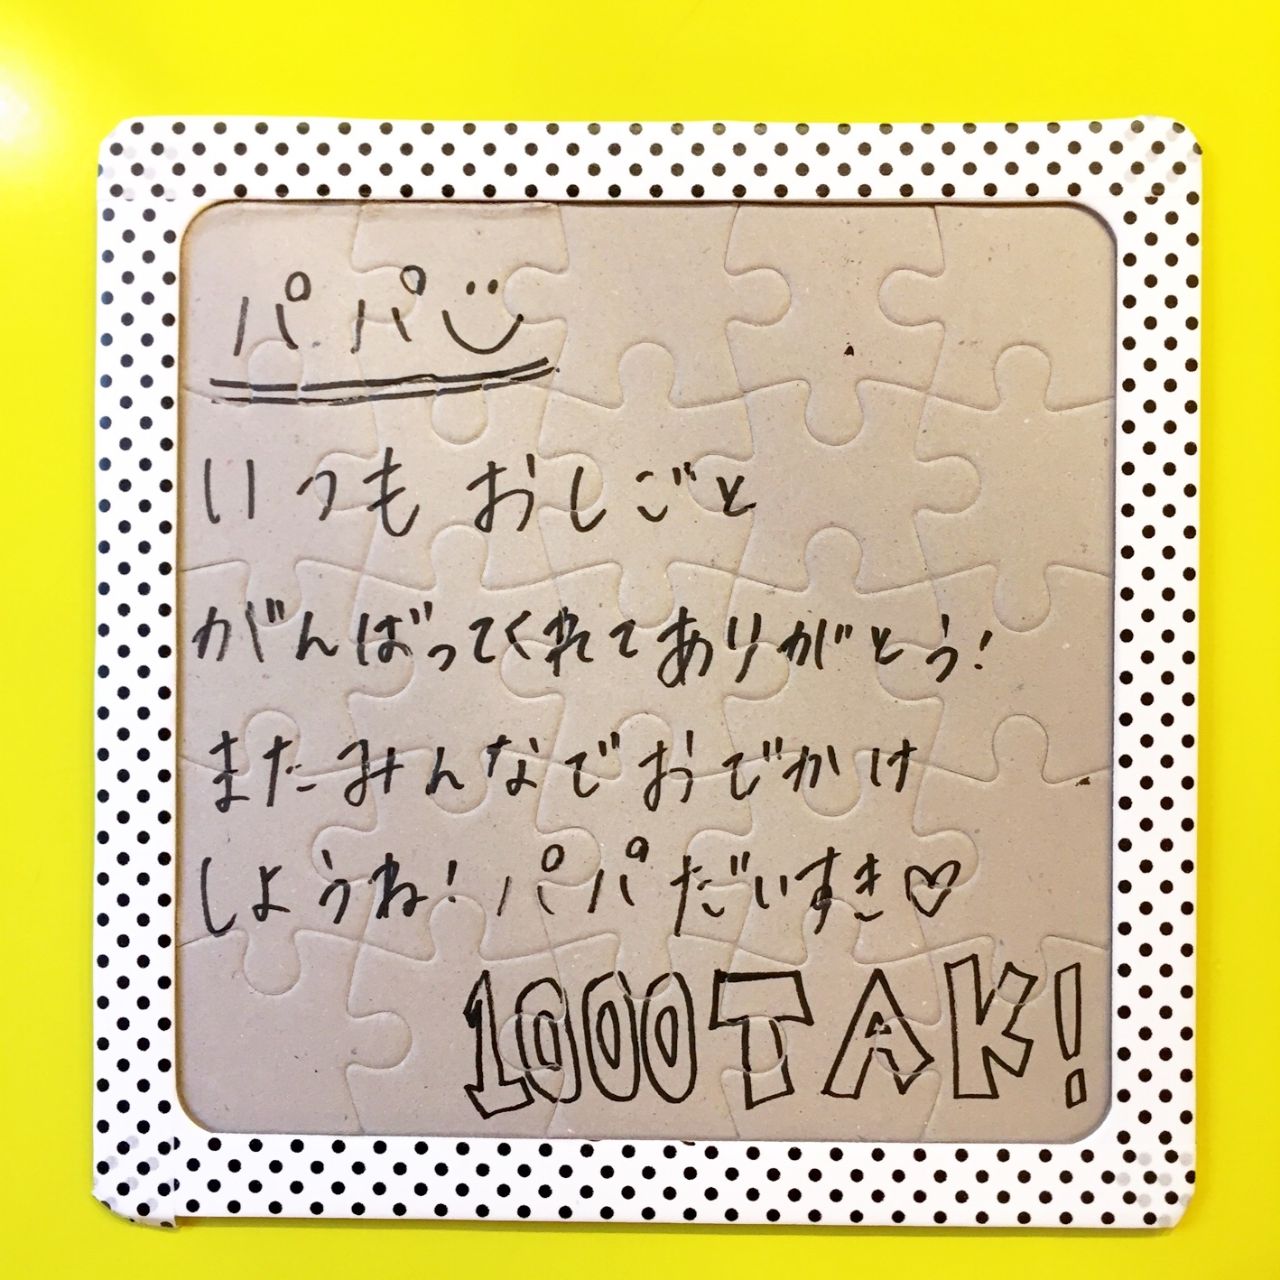 パパ
いつもおしごと
がんばってくれてありがとう!
またみんなでおでかけ
しようね! パパだいすき♡
1000TAK!